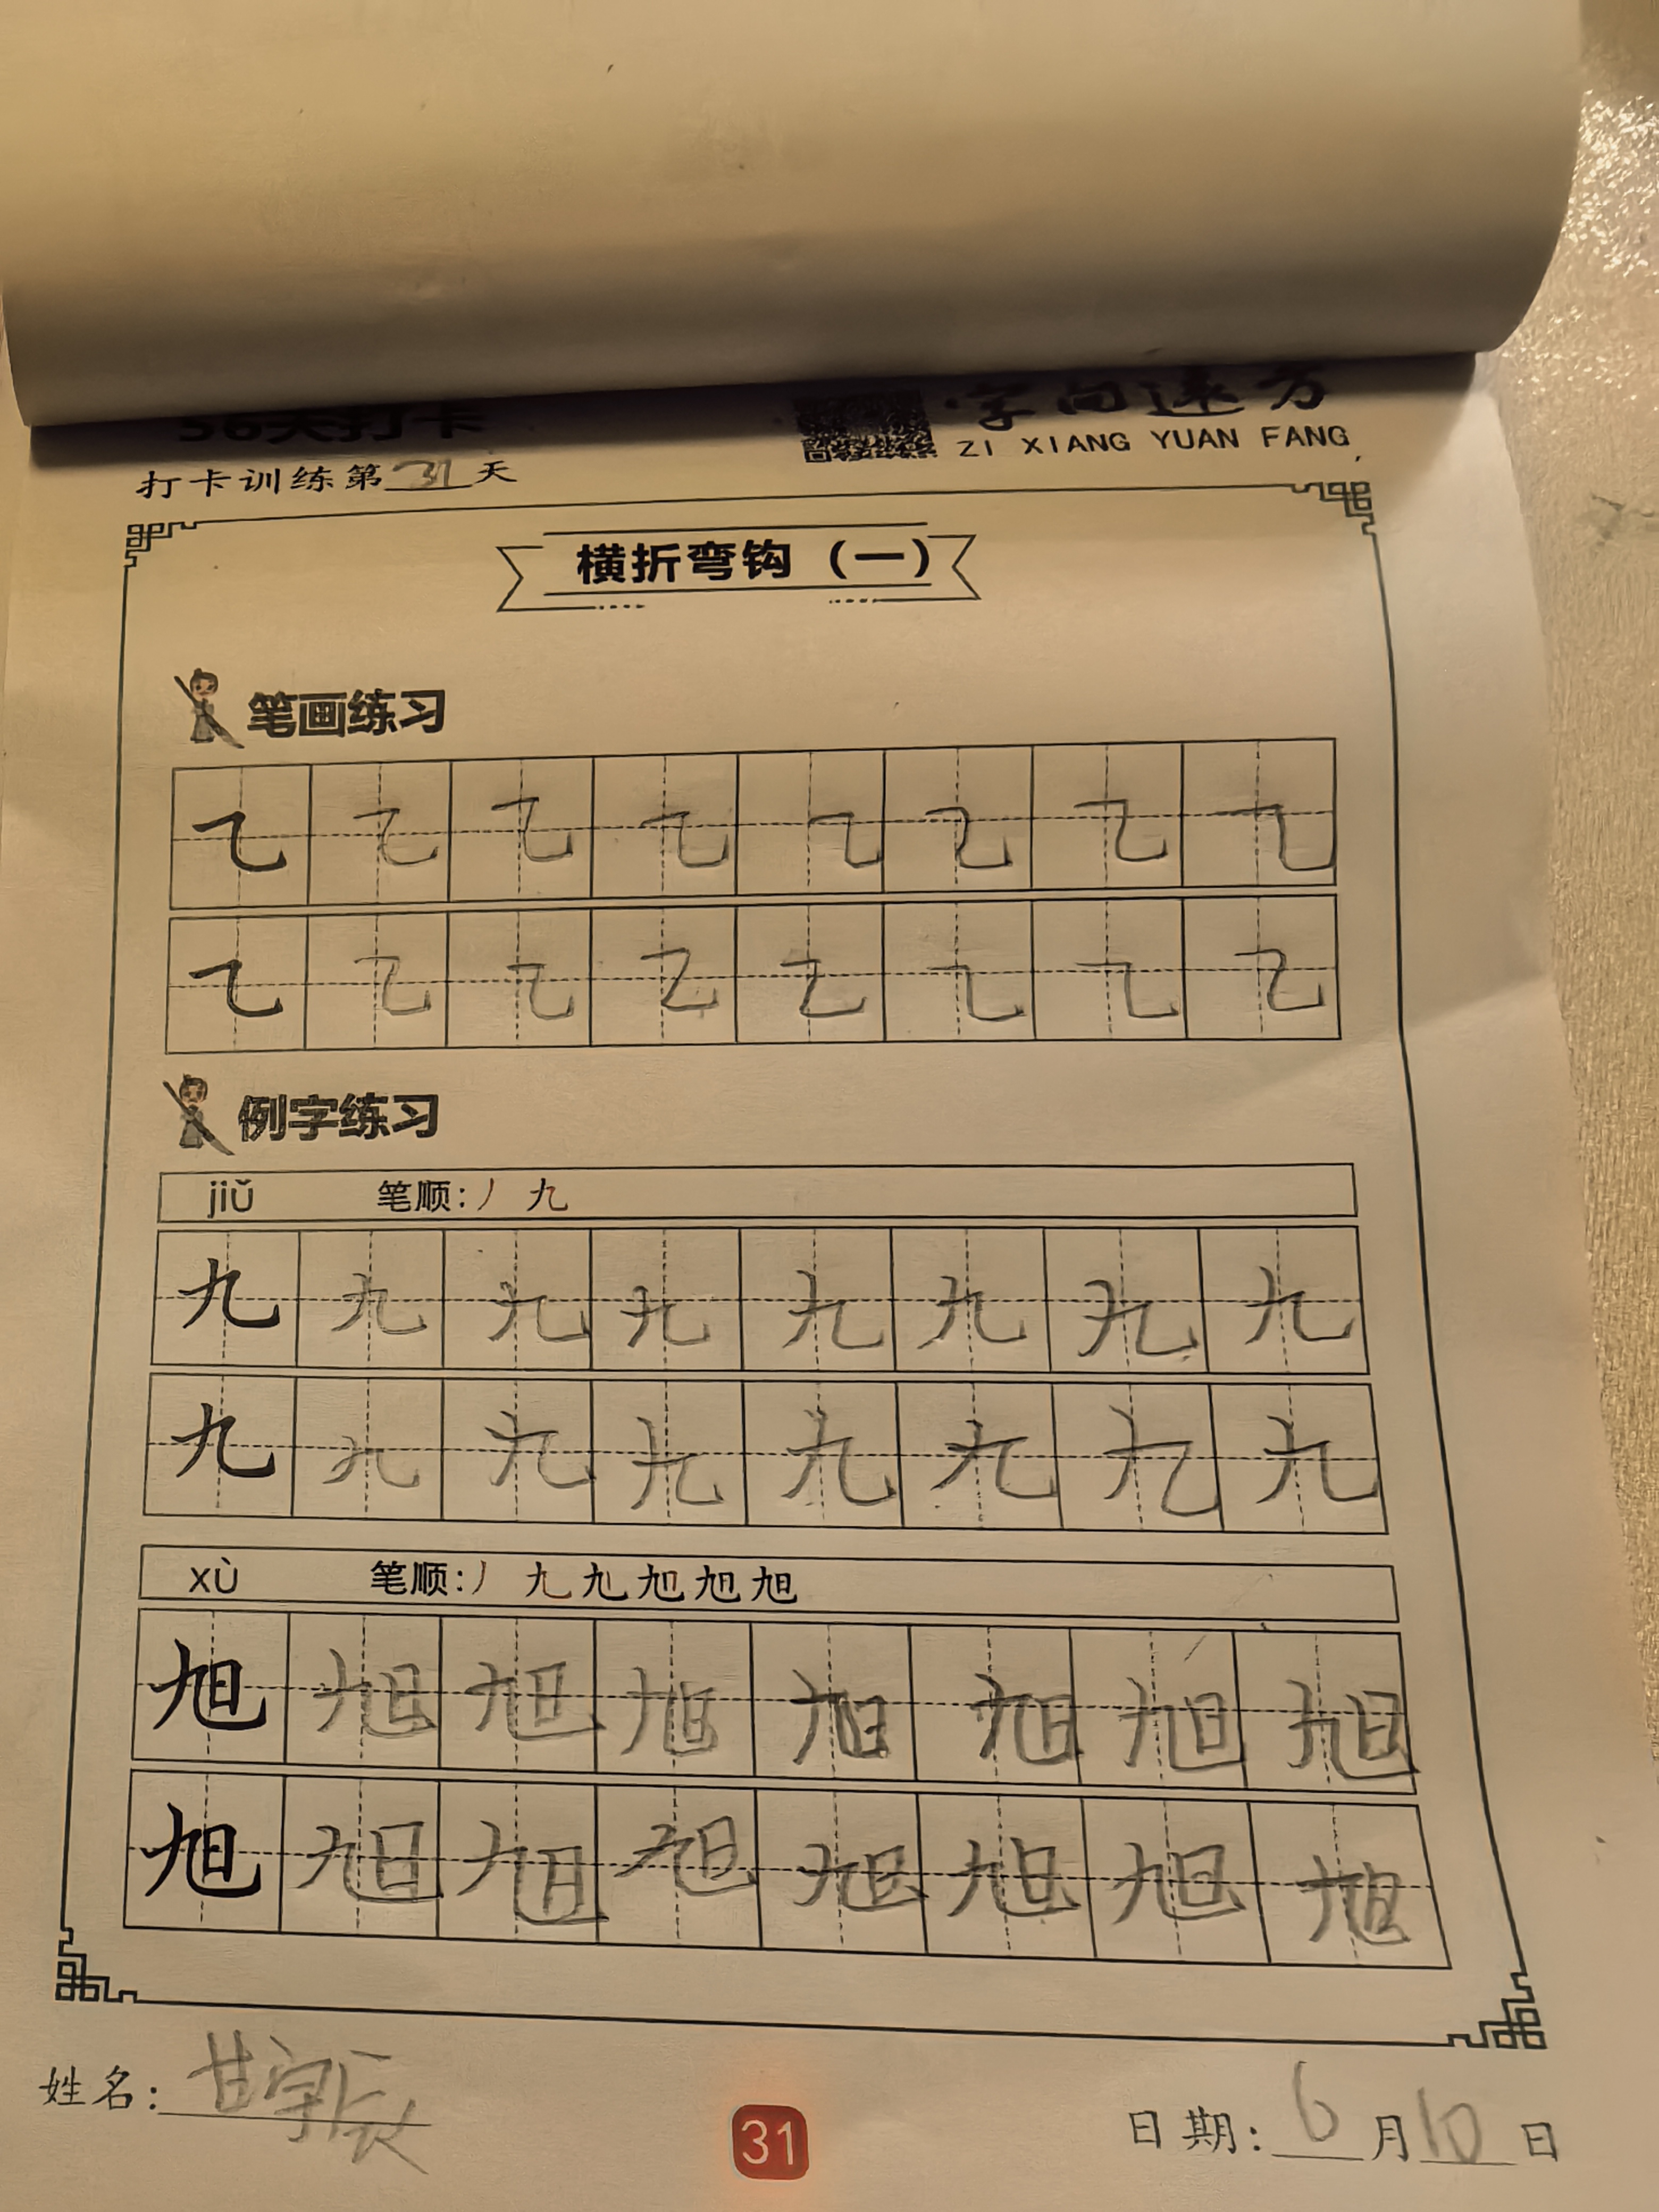 56天打卡
字向远方
ZI XIANG YUAN FANG
打卡训练第31天
横折弯钩（一）
笔画练习
㇈ ㇈ ㇈ ㇈ ㇈ ㇈ ㇈ ㇈
㇈ ㇈ ㇈ ㇈ ㇈ ㇈ ㇈ ㇈
例字练习
jiǔ 笔顺：丿 九
九 九 九 九 九 九 九 九
九 九 九 九 九 九 九 九
xù 笔顺：丿 九 旭 旭 旭 旭
旭 旭 旭 旭 旭 旭 旭 旭
旭 旭 旭 旭 旭 旭 旭 旭
姓名：甘宇辰
31
日期：6月10日